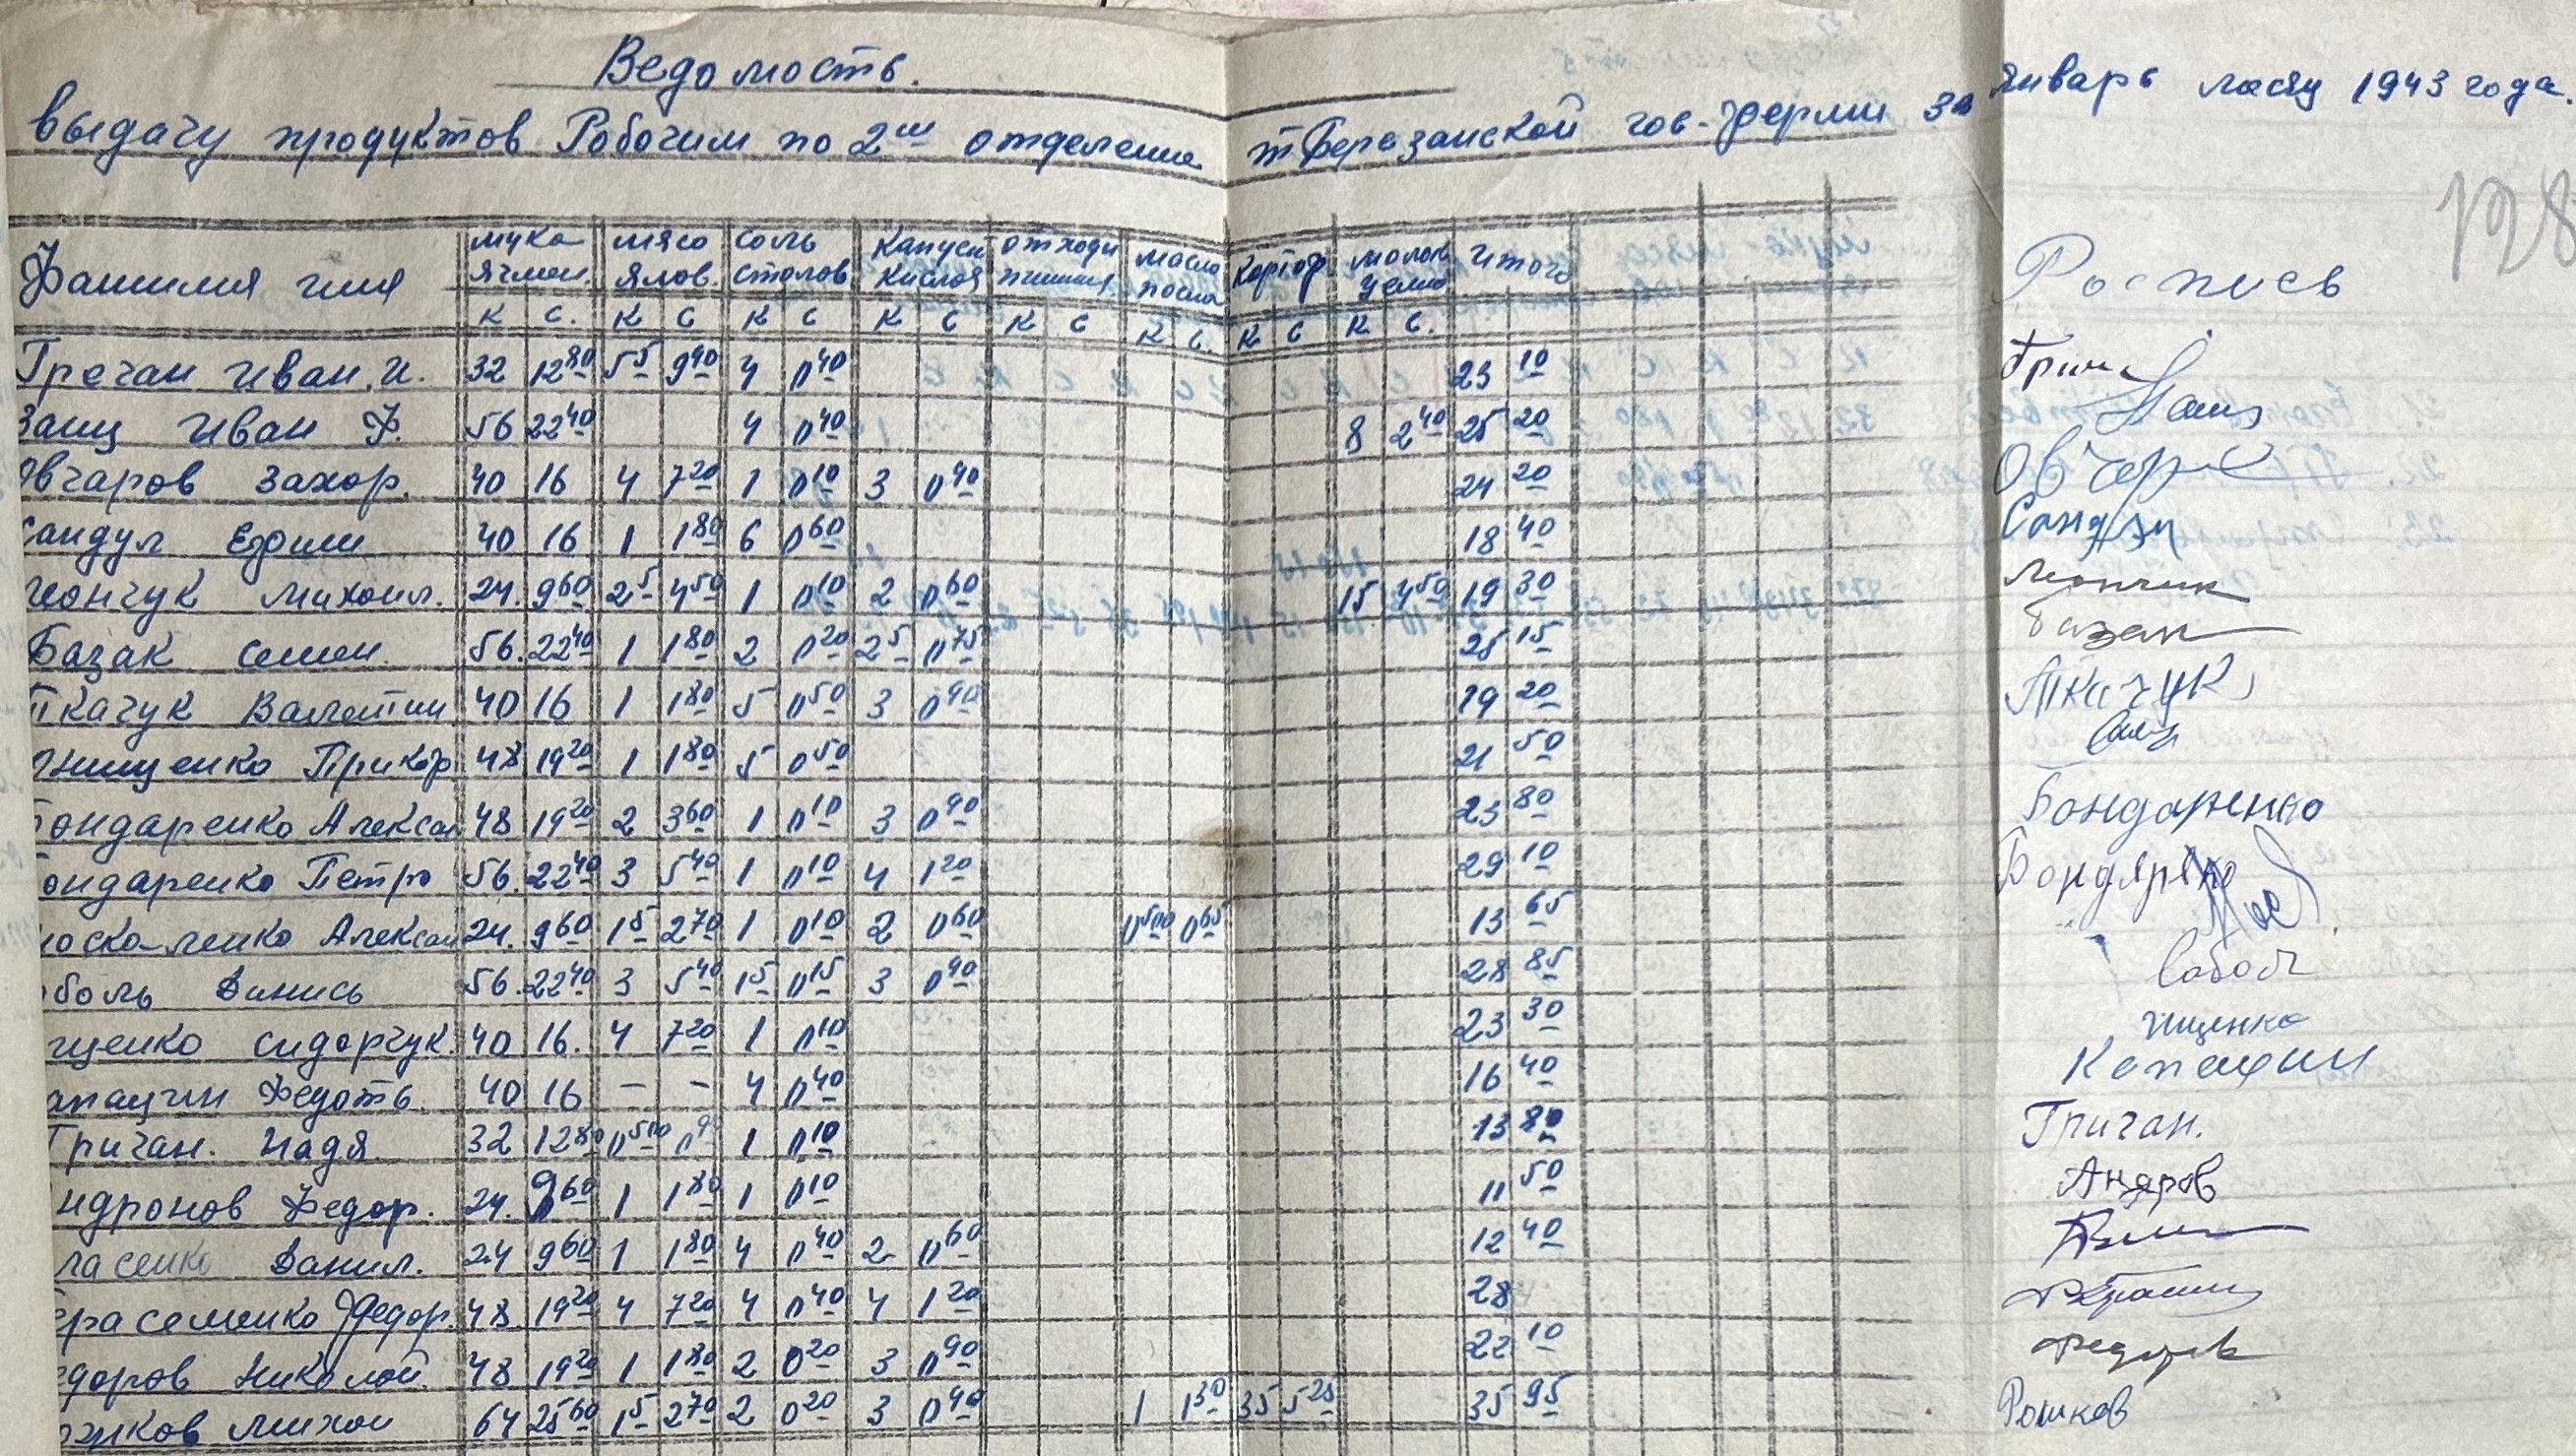 Ведомость.
выдачу продуктов Робочим по 2ᵐ отделение т Березанской гос-Ферми за январь месяц 1943 года.
128
Фамилия имя мука ячмен. мясо ялов. соль столов капуси кислоя отходи пшениц масло посна картоф молок цельно Итого Роспись
К С. К С К С К С К С К С. К С К С.
Гречан Иван. И. 32 12 80 5 5 9 90 4 0 40 23 10
Заиц Иван Ф. 56 22 40 4 0 40 8 2 40 25 20 Заиц
Овчаров Захор. 40 16 4 7 20 1 0 10 3 0 90 24 20 Овчар
Сандул Ефим 40 16 1 1 80 6 0 60 18 40 Сандул
Леончук Михоил. 24. 9 60 2 5 4 50 1 0 10 2 0 60 15 4 50 19 30 Леончик
Базак Семен. 56. 22 40 1 1 80 2 0 20 2 5 0 75 25 15 Базак
Ткачук Валентин 40 16 1 1 80 5 0 50 3 0 90 19 20 Ткачук
Онищенко Прикоф 48 19 20 1 1 80 5 0 50 21 50
Бондаренко Алексан 48 19 20 2 3 60 1 0 10 3 0 90 23 80 Бондаренко
Бондаренко Петро 56. 22 40 3 5 40 1 0 10 4 1 20 29 10 Бондяренко
москаленко Алексан 24. 9 60 1 5 2 70 1 0 10 2 0 60 0 500 0 65 13 65 Мос
оболь Динись 56. 22 40 3 5 40 1 5 0 15 3 0 90 28 85 Соболь
ищенко Сидорчук. 40 16. 4 7 20 1 0 10 23 30 Ищенко
апацин Федоть. 40 16 – – 4 0 40 16 40 Капацин
Гричан. Надя. 32 12 80 0 500 0 9 1 0 10 13 80 Гричан.
ндронов Федор. 24. 9 60 1 1 80 1 0 10 11 50 Андров
ласенко Данил. 24 9 60 1 1 80 4 0 40 2 0 60 12 40
ерасеменко Федор. 48 19 20 4 7 20 4 0 40 4 1 20 28
едоров Николой. 48 19 20 1 1 80 2 0 20 3 0 90 22 10 Федоров
ожков Михои 64 25 60 1 5 2 70 2 0 20 3 0 90 1 1 30 35 5 25 35 95 Рошков